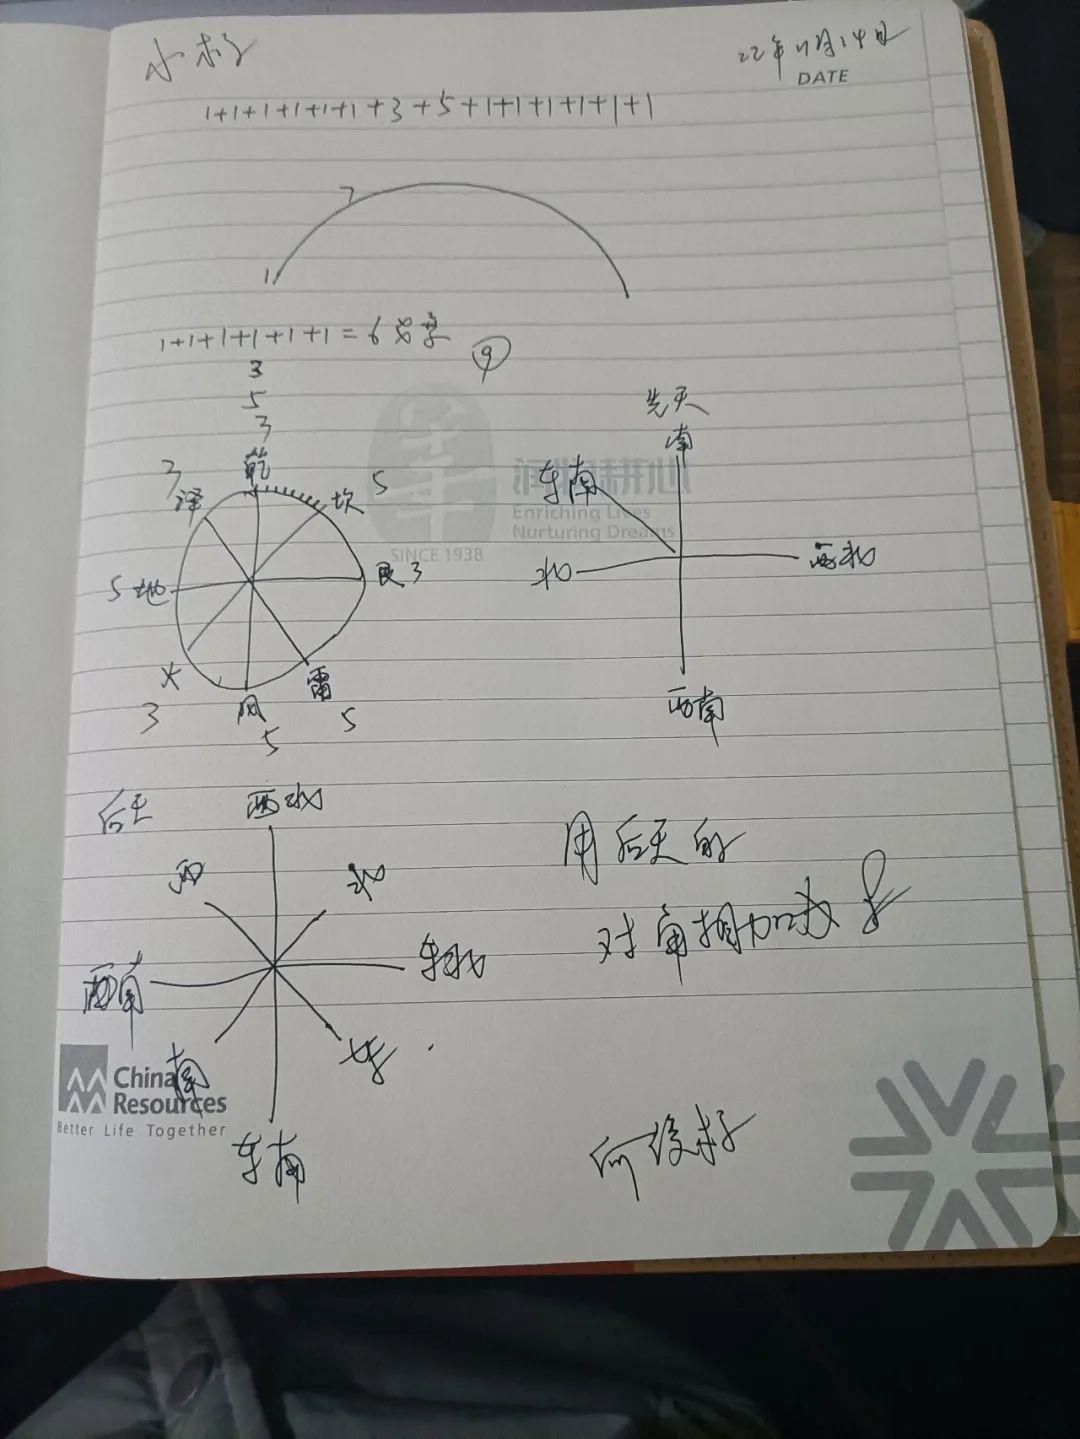 22年11月14日
DATE
1+1+1+1+1+1+3+5+1+1+1+1+1+1
7
1
1+1+1+1+1+1=6
9
3
5
3
乾
3
泽
坎
5
5
地
艮 3
火
3
风
5
雷
5
SINCE 1938
Enriching Lives
Nurturing Dreams
先天
南
东南
北
西北
西南
后天
西北
西
北
西南
东北
南
东
东南
用后天的
对角相加成
China
Resources
Better Life Together